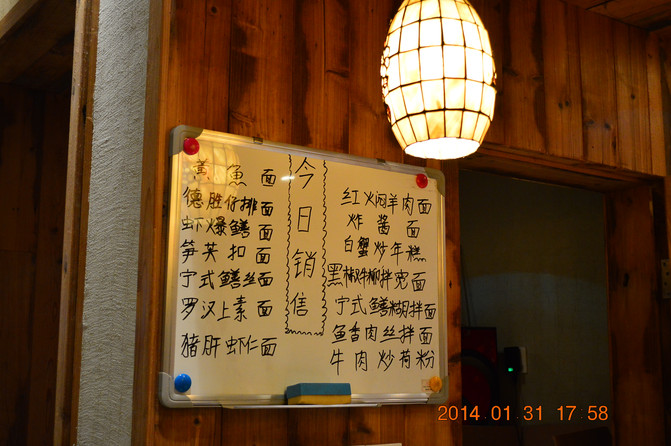 黄鱼面
德胜仔排面
虾爆鳝面
笋夹扣面
宁式鳝丝面
罗汉上素面
猪肝虾仁面
今日销售
红火焖羊肉面
炸酱面
白蟹炒年糕
黑椒牛柳拌宽面
宁式鳝糊拌面
鱼香肉丝拌面
牛肉炒荷粉
2014 01 31 17 58